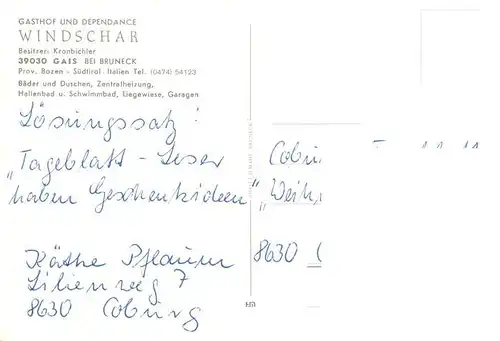 GASTHOF UND DEPENDANCE
WINDSCHAR
Besitzer: Kronbichler
39030 GAIS BEI BRUNECK
Prov. Bozen - Südtirol Italien Tel. (0474) 54123
Bäder und Duschen, Zentralheizung,
Hallenbad u. Schwimmbad, Liegewiese, Garagen
Lösungssatz:
"Tageblatt - Leser
haben Geschenkideen"
Käthe Pflaum
Lilienweg 7
8630 Coburg
"Weih
8630